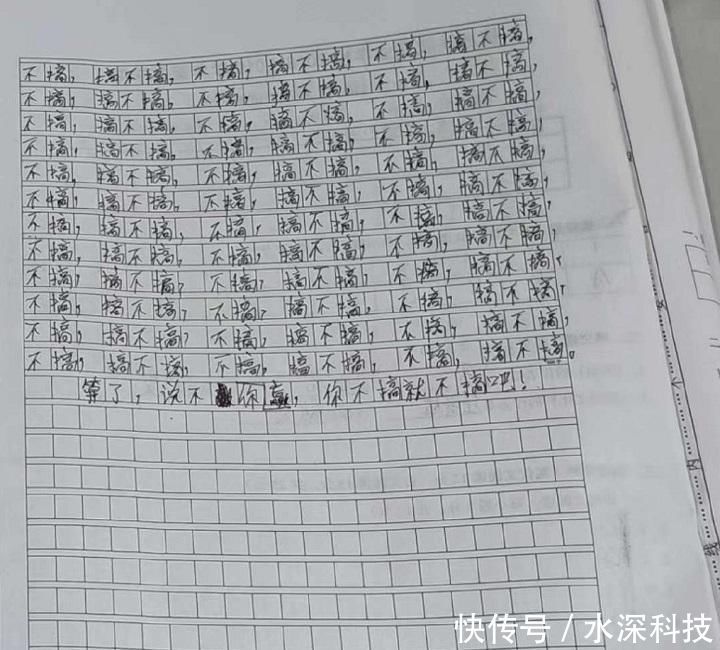 不搞，搞不搞，不搞，搞不搞，不搞，搞不搞，
不搞，搞不搞，不搞，搞不搞，不搞，搞不搞，
不搞，搞不搞，不搞，搞不搞，不搞，搞不搞，
不搞，搞不搞，不搞，搞不搞，不搞，搞不搞，
不搞，搞不搞，不搞，搞不搞，不搞，搞不搞，
不搞，搞不搞，不搞，搞不搞，不搞，搞不搞，
不搞，搞不搞，不搞，搞不搞，不搞，搞不搞，
不搞，搞不搞，不搞，搞不搞，不搞，搞不搞，
不搞，搞不搞，不搞，搞不搞，不搞，搞不搞，
不搞，搞不搞，不搞，搞不搞，不搞，搞不搞，
不搞，搞不搞，不搞，搞不搞，不搞，搞不搞，
不搞，搞不搞，不搞，搞不搞，不搞，搞不搞。
算了，说不你赢，你不搞就不搞吧！
内
线
快传号 / 水深科技